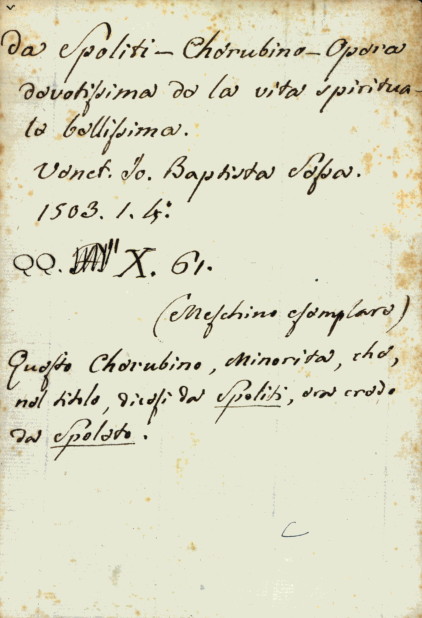 Da Spoliti - Cherubino - Opera
devotissima de la vita spiritua-
le bellissima.
Venet. Jo. Baptista Sessa.
1503. 1. 4:
QQ. X. 61.
(Meschino esemplare)
Questo Cherubino, Minorita, che,
nel titolo, dicesi da Spoliti, era credo
da Spoleto.